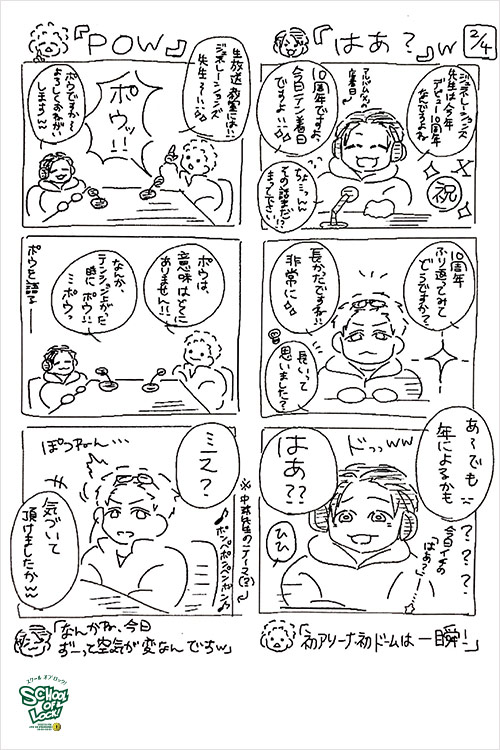 2/4
『はあ？』w
ジェネレーションズ
先生は今年
デビュー10周年
なんですよね
祝
アルバムが今
着日
10周年ですよ、
今日テン着日
ですよ〜い
ちょっ、んん
その話まだ
まって下さい!!
10周年
ふり返ってみて
どうですか？
長かったですね!!
非常に♪
長いって
思いました？
あ〜でも
年によるかも
ドっww
はあ??
ひひ
今日イチの
「はあ？」
????
「初アリーナ初ドームは一瞬!」
『POW』
生放送教室には!!
ジェネレーションズ
先生〜!!
ポウッ!!
ポウですか〜
よろしくおねがい
します〜
ポウは、
意味はとくに
ありません!!
なんか、
テンション上がった
時にポウ!!
ミポウ♪
ポウを語る
ミス？
ぽつねーん…
気づいて
頂けましたか〜
※中務先生のニュース(?)
♪ポンペポンペンポン♪
「なんかね、今日
ずーっと空気が変なんですw」
スクール オブ ロック!
SCHOOL OF LOCK!